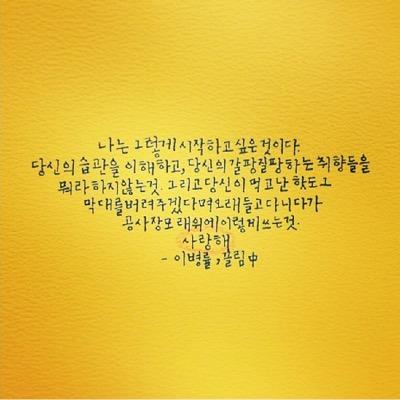 나는 그렇게 시작하고 싶은 것이다.
당신의 습관을 이해하고, 당신의 갈팡질팡하는 취향들을
뭐라 하지 않는 것. 그리고 당신이 먹고 난 핫도그
막대를 버려주겠다며 오래 들고 다니다가
공사장 모래 위에 이렇게 쓰는 것.
사랑해
- 이병률, 끌림 中